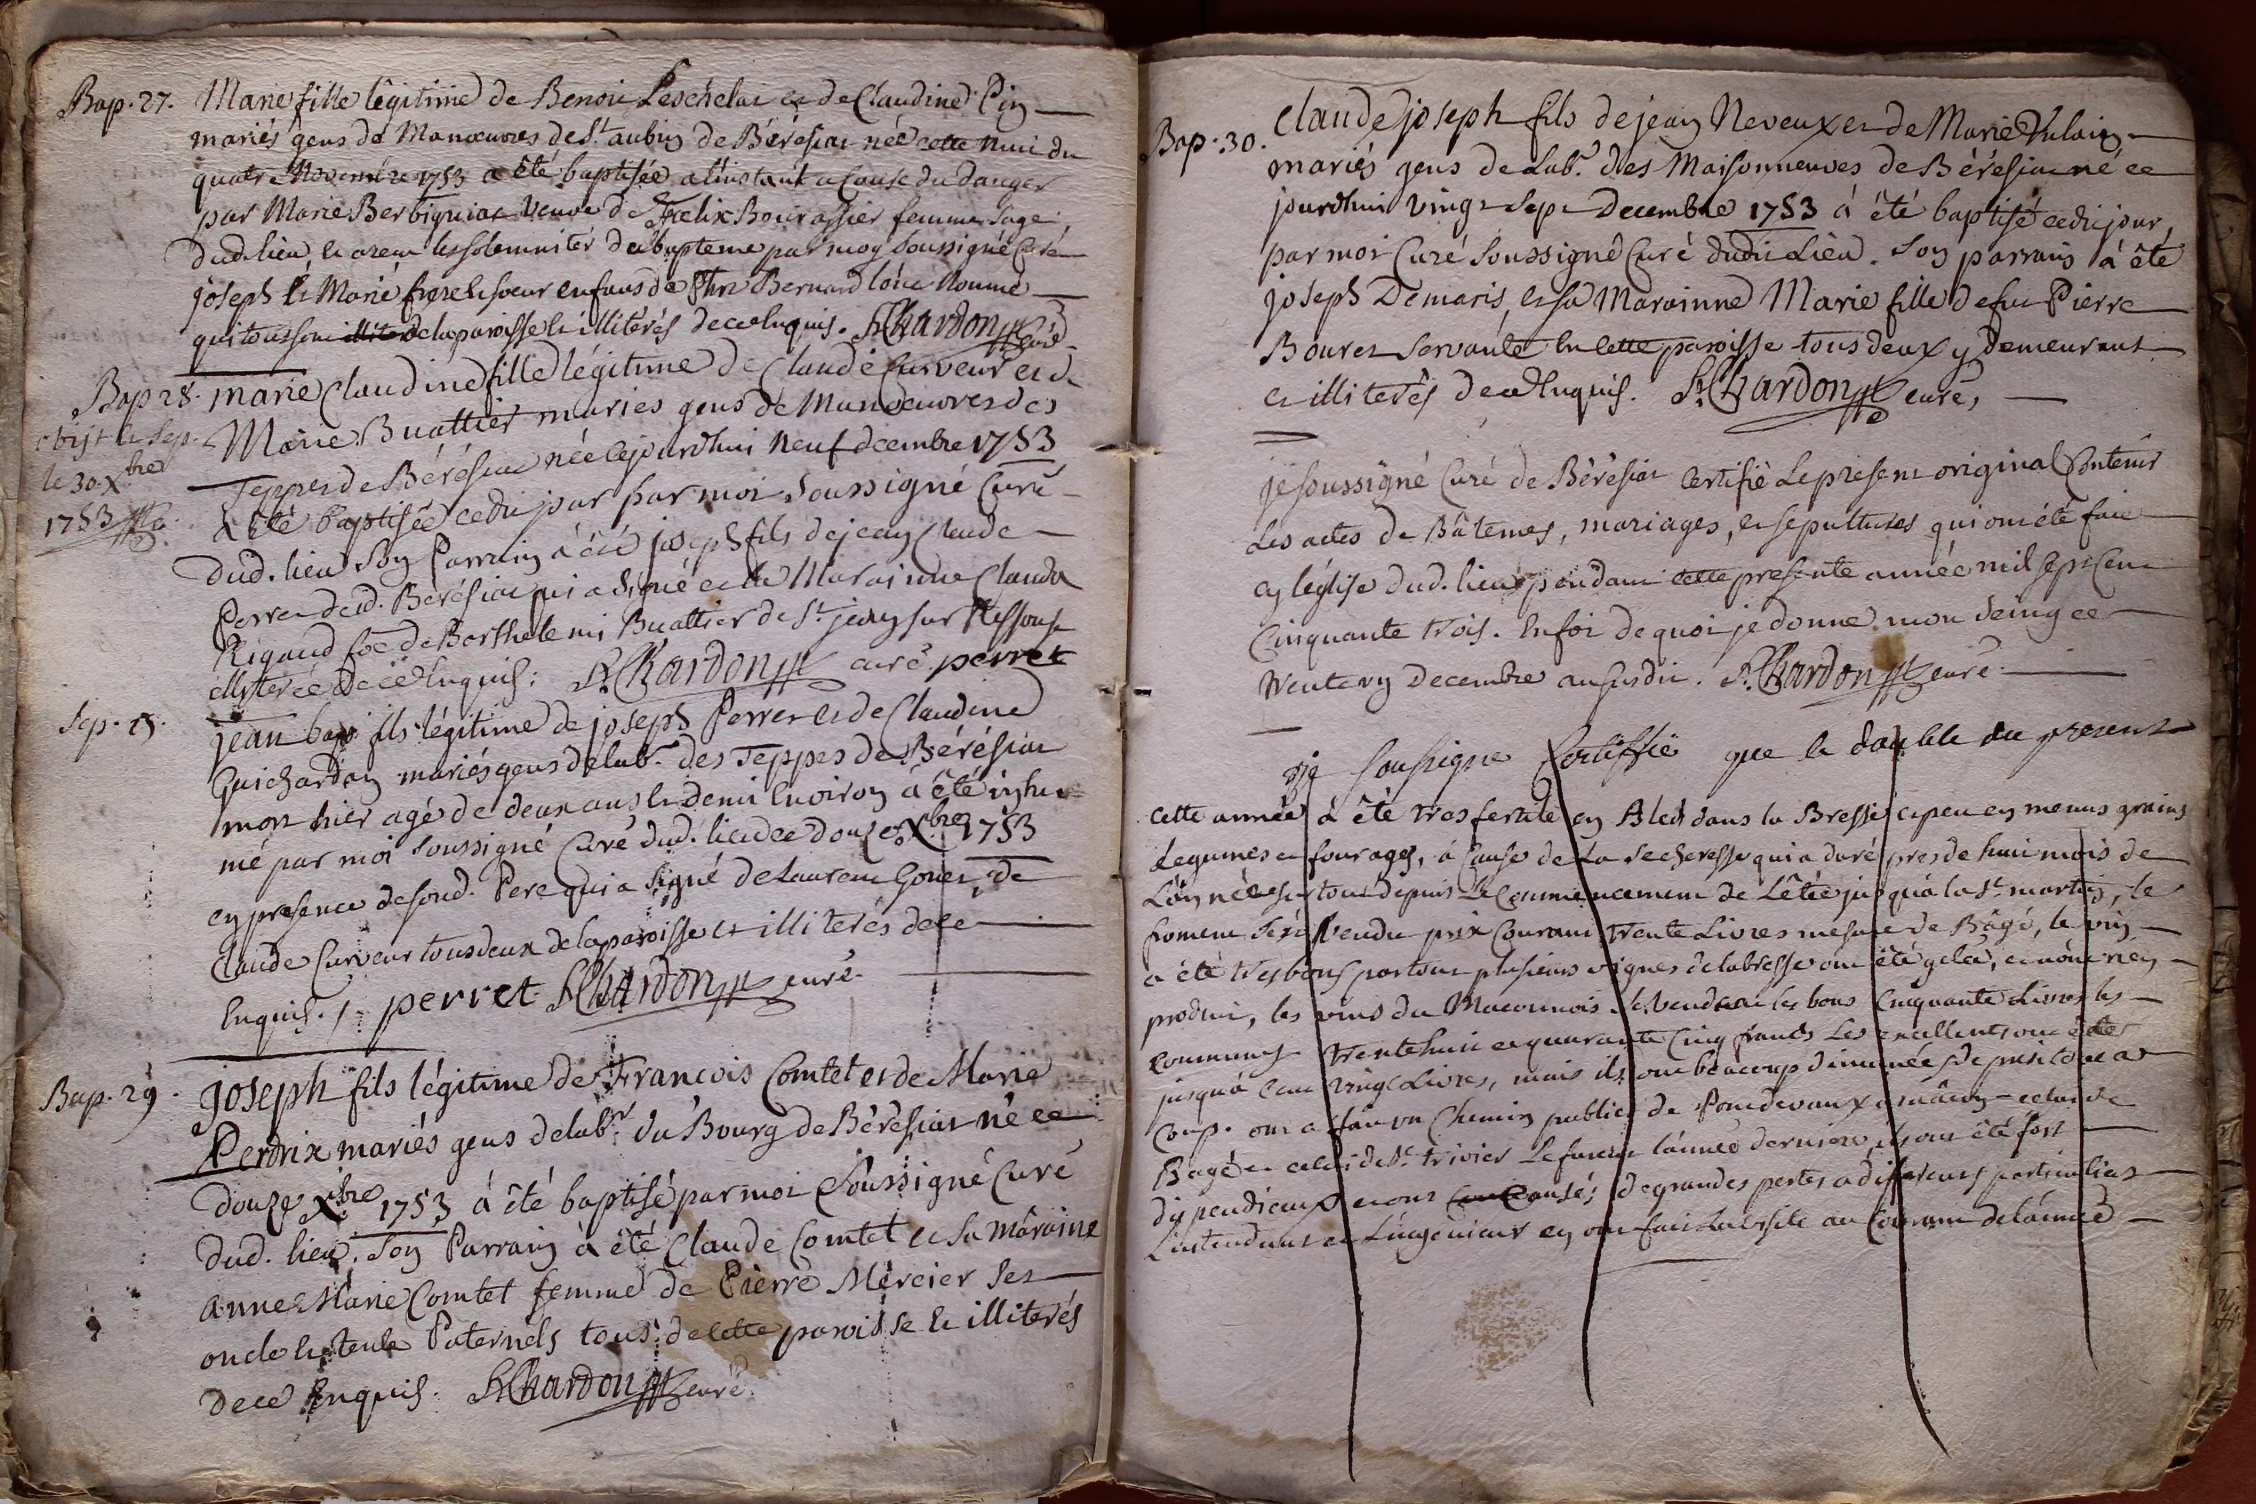 Bap. 27. Marie fille légitime de Benoit Leschelat et de Claudine Pin
mariés gens de Manœuvres de St aubin de Béréstat née cette nuit du
quatre Novembre 1753 a été baptisée a l'instant a Cause du danger
par Marie Berbiguiat veuve de Fœlix Bourassier femme sage
dud. lieu, et a receu les solemnités du bapteme par moy soussigné Curé
joseph et Marie frere et soeur enfans de Bernard
qui tous sont de la paroisse et illitérés de ce enquis. Chardon curé
Bap 28. marie Claudine fille légitime de Claude Curveur et de
Marie Buattier mariés gens de Manœuvres des
le 30. Xbre
1753
Teppes de Béréstat née cejourdhui neuf decembre 1753
a été baptisée cedit jour par moi soussigné Curé
dud. lieu son Parrain à été joseph fils de jean Claude
Perret dud. Béréstat qui a signé et la Marainne Clauda
Rigaud foe de Barthelemi Buattier de St jean sur Ressouse
illiterée de ce Enquis: Chardon curé perret
Sep. 15. jean bapt fils légitime de joseph Perret et de Claudine
Guichardan mariés gens de labr. des Teppes de Béréstat
mort hier agé de deux ans et demi Environ à été inhu-
mé par moi soussigné Curé dud. lieu ce douze Xbre 1753
en presence de sond. Pere qui a signé de Laurent Gonet, de
Claude Curveur tous deux de la paroisse et illiterés de ce
Enquis. perret Chardon curé.
Bap. 29. joseph fils légitime de Francois Comtet et de Marie
Perdrix mariés gens de labr. du Bourg de Béréstat né ce
douze Xbre 1753 à été baptisé par moi Soussigné Curé
dud. lieu. Son Parrain à été Claude Comtet et sa Maraine
anne Marie Comtet femme de Pierre Mercier ses
oncle et tente Paternels tous de cette paroisse et illiterés
de ce Enquis. Chardon curé.
Bap. 30. Claude joseph fils de jean Neveux et de Marie Vulain
mariés gens de Labr. des Maisonneuves de Béréstat né ce
jourdhui vingt Sept Decembre 1753 à été baptisé cedit jour
par moi Curé Soussigné Curé dudit Lieu. Son parrain à été
joseph Demaris, et sa Marainne Marie fille de fut Pierre
Bouret Servante en cette paroisse tous deux y demeurant
et illiterés de ce Enquis. Chardon curé,
je soussigné Curé de Béréstat Certifie Le present original Contenir
Les actes de Bâtemes, mariages, et sepultures qui ont été fait
en l'église dud. lieu pendant cette presente année mil sept Cent
Cinquante trois. En foi de quoi je donne mon seing ce
trente un Decembre an susdit. Chardon curé.
je soussigne Certiffie que le double du present
cette année à été tres fertile en Bled dans la Bresse et peu en menus grains
Legumes et fourages, à Cause de La secheresse qui a duré pres de huit mois de
L'année surtout depuis Le Commencement de L'été jusqu'à la St martin, le
froment s'est vendu prix Courant trente Livres mesure de Bâgé, le vin
a été tres bon partout plusieurs vignes de la bresse ont été gelée, et n'ont rien
produit, les vins du Maconnois se vendent les bons Cinquante Livres les
communs trente huit et quarante Cinq francs Les excellents ont été
jusqu'à Cent vingt Livres, mais ils ont beaucoup diminués de prix tout a
Coup. on a fait un Chemin public de Pondevaux a mâcon celui de
Bâgé et celui de St. trivier Le furent l'année derniere ils ont été fort
dispendieux et ont causés de grandes pertes a differens particuliers
L'intendant et L'ingenieur en ont fait La visite au Courant de l'année